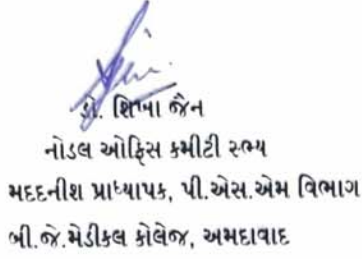 ડો. શિખા જૈન
નોડલ ઓફિસ કમીટી સભ્ય
મદદનીશ પ્રાધ્યાપક, પી.એસ.એમ વિભાગ
બી.જે.મેડીકલ કોલેજ, અમદાવાદ